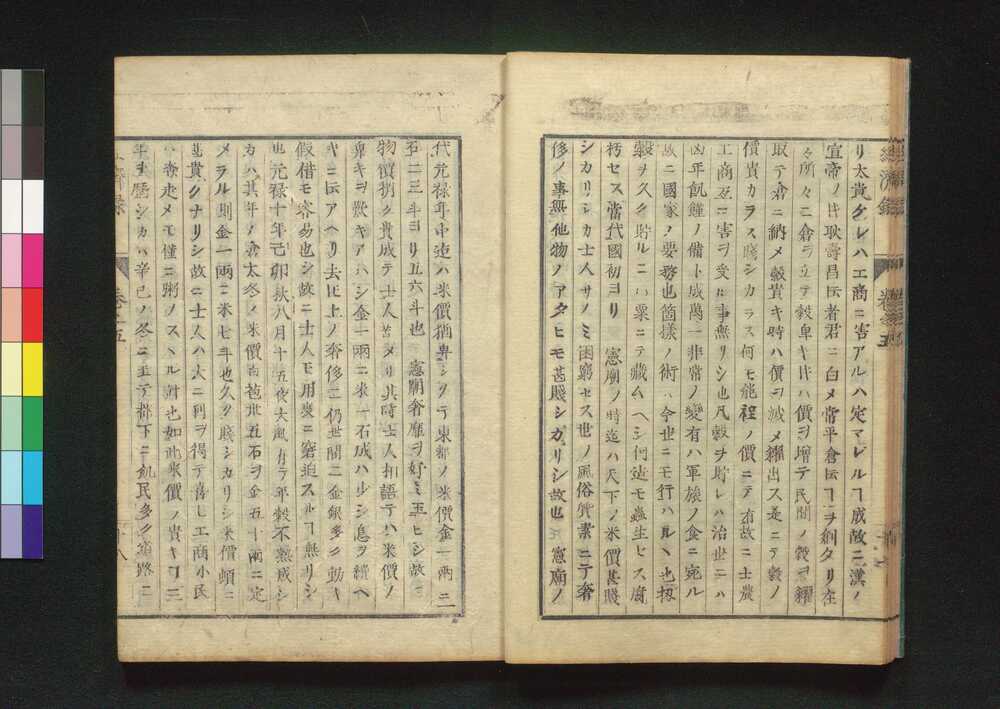 リ太貴クレハ工商ニ害アルハ定マレルヿ成故ニ漢ノ
宣帝ノ時耿壽昌伝者君ニ白メ常平倉伝ヿヲ創タリ在
々所々ニ倉ヲ立テ穀卑キ時ハ價ヲ増テ民間ノ穀ヲ糴
取テ倉ニ納メ穀貴キ時ハ價ヲ減メ糶出ス是ニテ穀ノ
價貴カラス賤シカラス何モ能程ノ價ニテ有故ニ士農
工商互ニ害ヲ受ルヿ無リシ也凡穀ヲ貯レハ治世ニハ
凶年飢饉ノ備ト成萬一非常ノ變有ハ軍旅ノ食ニ宛ル
故ニ國家ノ要務也箇様ノ術ハ今世ニモ行ハルヽ也扨
穀ヲ久ク貯ルニハ粟ニテ藏ムヘシ何迠モ蟲生セス腐
朽セス當代國初ヨリ 憲廟ノ時迠ハ天下ノ米價甚賤
シカリシカ士人サノミ困窮セス世ノ風俗質素ニテ奢
侈ノ事無他物ノアタヒモ甚賤シカリシ故也 憲廟ノ
經濟録 卷之五
代元禄年中迠ハ米價猶卑シクテ東都ノ米價金一兩ニ
石二三斗ヨリ五六斗也 憲廟奢靡ヲ好ミ玉ヒシ故ニ
物價漸ク貴成テ士人苦メリ其時士人相語テハ米價ノ
卑キヲ歎キアハレ金一兩ニ米一石成ハ少シ息ヲ續ヘ
キニ伝アヘリ去圧上ノ奢侈ニ仍世間ニ金銀多ク動キ
假借モ容易也シ故ニ士人モ用度ニ窮迫スルヿ無リシ
也元禄十年己卯秋八月十五夜大風有テ年穀不熟成シ
カハ其年ノ倉太冬ノ米價百苞卅五石ヲ金五十兩ニ定
メラル則金一兩ニ米七斗也久ク賤シカリシ米價頓ニ
甚貴クナリシ故ニ士人ハ大ニ利ヲ得テ喜ヒ工商小民
ハ奔走メモ僅ニ粥ノスヽル計也如此米價ノ貴キヿ三
年ヲ歴シカハ辛巳ノ冬ニ至テ都下ニ飢民多ク道路ニ